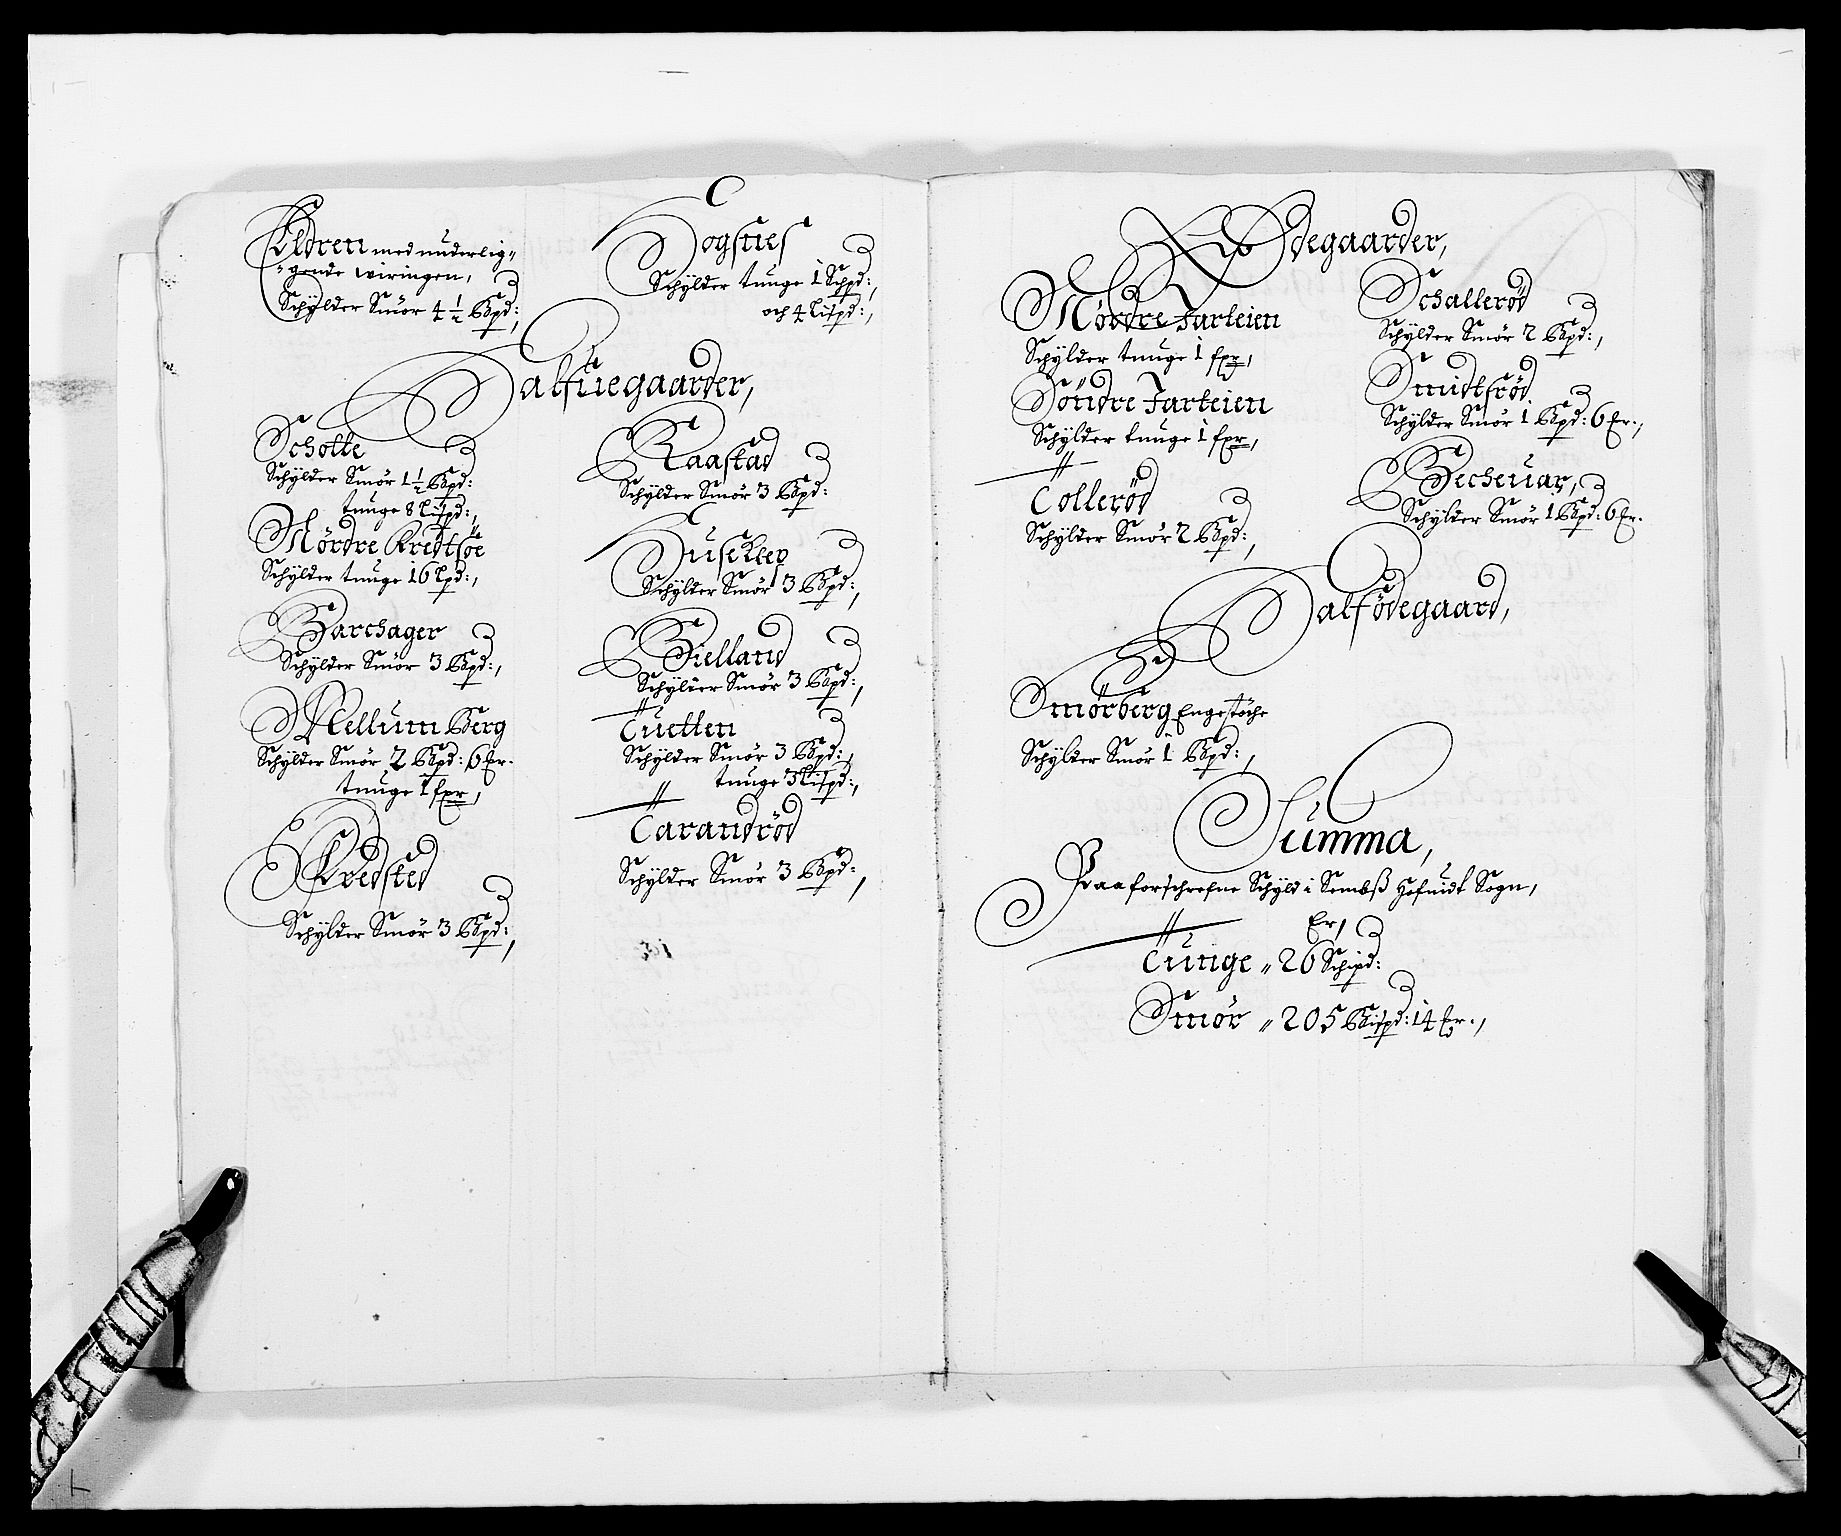 Eldren med underlig-
gende wiringen,
Schylder Smör 4 1/2 Bpd:,
Hogsnes
Schylder tunge 1 Schpd:,
och 4 Lispd:,
Halfuegaarder,
Schotte
Schylder Smör 1 1/2 Bpd:
tunge 8 Lispd:,
Nördre Kredtsöe
Schylder tunge 16 Lpd:,
Barchager
Schylder Smör 3 Bpd:,
Mellum Berg
Schylder Smör 2 Bpd: 6 Er.
tunge 1 fxr,
Kredsted
Schylder Smör 3 Bpd:,
Raastad
Schylder Smör 3 Bpd:
Huseklep
Schylder Smör 3 Bpd:,
Bielland
Schylder Smör 3 Bpd:,
Tuetten
Schylder Smör 3 Bpd:,
tunge 3 Lispd:,
Tarandröd
Schylder Smör 3 Bpd:,
Ödegaarder,
Nördre Jarleien
Schylder tunge 1 fxr,
Söndre Jarleien
Schylder tunge 1 fxr,
Tolleröd
Schylder Smör 2 Bpd:,
Schalleröd
Schylder Smör 2 Bpd:,
Smidtsröd
Schylder Smör 1 Bpd: 6 Er.,
Becheuar,
Schylder Smör 1 Bpd: 6 Er.
Halfödegaard,
Smörberg Engestöche
Schylder Smör 1 Bpd:,
Summa,
Paa forschrefne Schyld i Sembß Hofuidt Sogn,
Er,
Tunge " 26 Schipd:
Smör " 205 Bispd: 14 Er.,